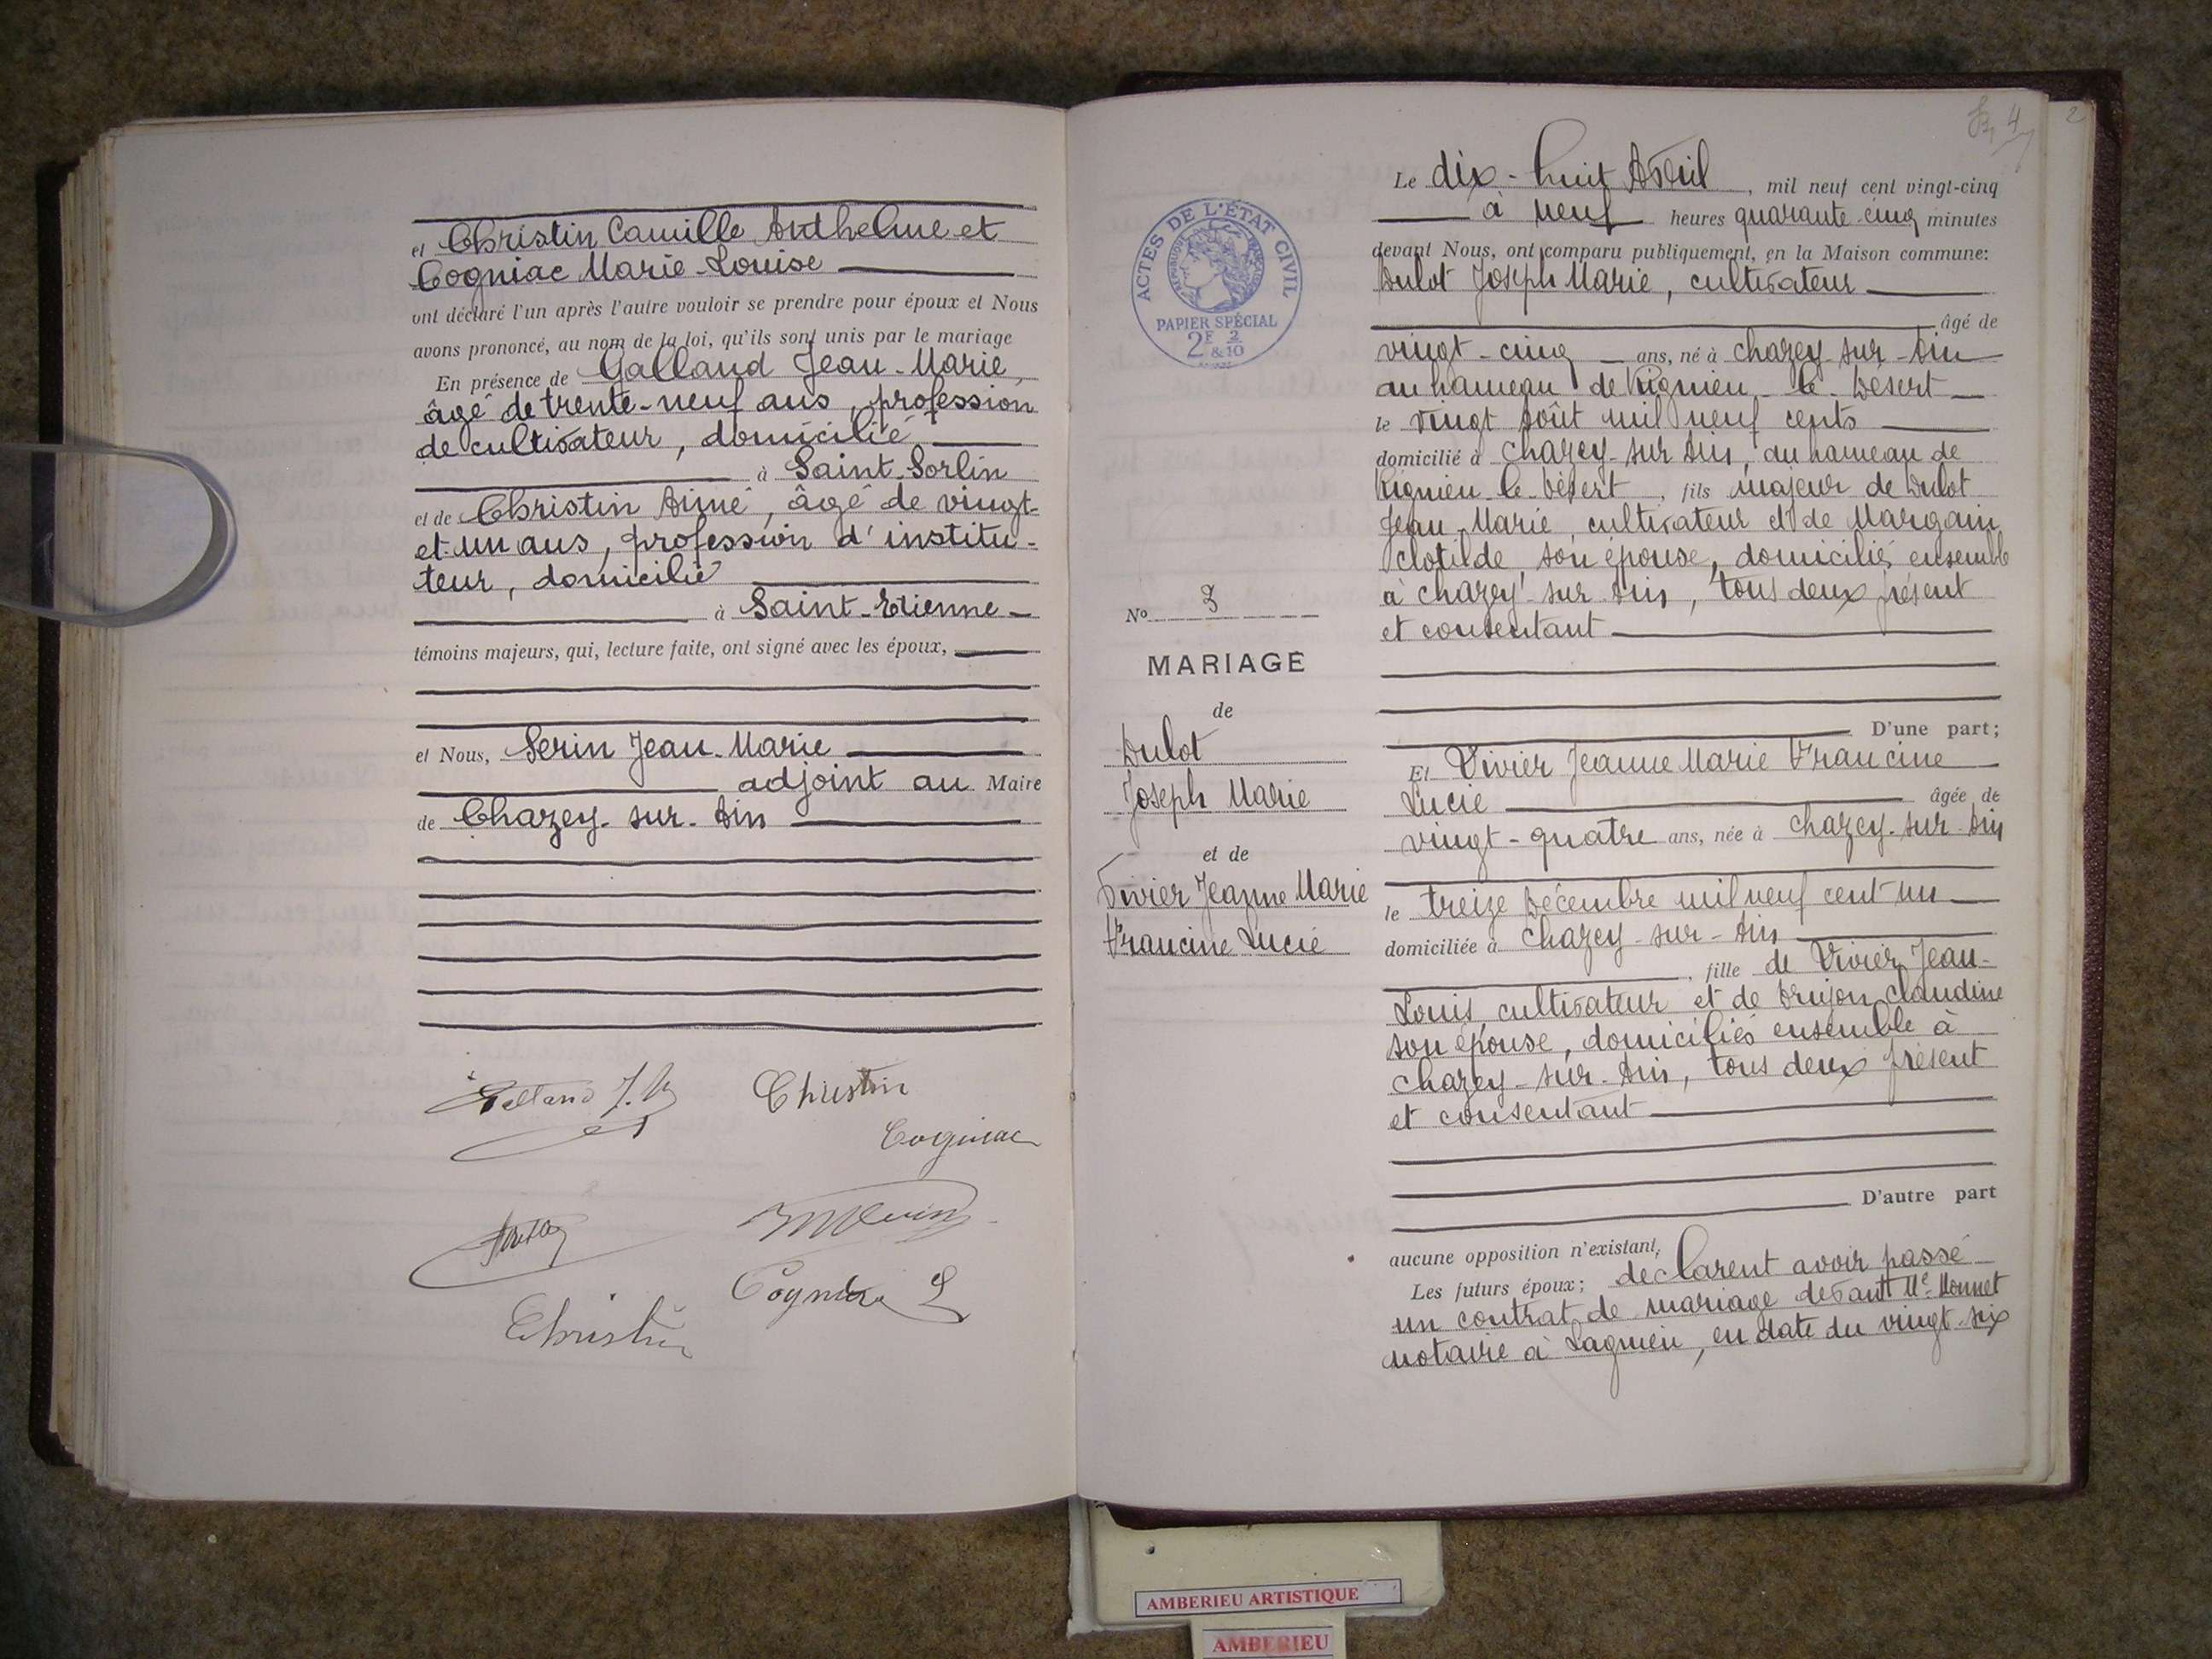 et Christin Camille Anthelme et
Cogniac Marie-Louise
ont déclaré l'un après l'autre vouloir se prendre pour époux et Nous
avons prononcé, au nom de la loi, qu'ils sont unis par le mariage
En présence de Galland Jean-Marie,
âgé de trente-neuf ans, profession
de cultivateur, domicilié
à Saint-Sorlin
et de Christin Aimé, âgé de vingt-
et-un ans, profession d'institu-
teur, domicilié
à Saint-Etienne
témoins majeurs, qui, lecture faite, ont signé avec les époux,
et Nous, Serin Jean-Marie
adjoint au Maire
de Chazey-sur-Ain
Galland J.M
Christin
Cogniac
Christin
4
2
ACTES DE L'ÉTAT CIVIL
PAPIER SPÉCIAL
2F 2
&10
No 3
MARIAGE
de
Dulot
Joseph Marie
et de
Vivier Jeanne Marie
Francine Lucie
Le dix-huit Avril, mil neuf cent vingt-cinq
à neuf heures quarante cinq minutes
devant Nous, ont comparu publiquement, en la Maison commune:
Dulot Joseph Marie, cultivateur
âgé de
vingt-cinq ans, né à Chazey-sur-Ain
au hameau de Rignieu-le-Désert
le vingt Août mil neuf cents
domicilié à Chazey-sur Ain, au hameau de
Rignieu-le-Désert, fils majeur de Dulot
Jean Marie, cultivateur et de Margain
Clotilde son épouse, domiciliés ensemble
à Chazey-sur-Ain, tous deux présent
et consentant
D'une part;
Et Vivier Jeanne Marie Francine
Lucie âgée de
vingt-quatre ans, née à Chazey-sur-Ain
le treize Décembre mil neuf cent un
domiciliée à Chazey-sur-Ain
, fille de Vivier Jean-
Louis, cultivateur et de Brujon Claudine
son épouse, domiciliés ensemble à
Chazey-sur-Ain, tous deux présent
et consentant
D'autre part
aucune opposition n'existant;
Les futurs époux; declarent avoir passé
un contrat de mariage devant Me Monnet
notaire à Lagnieu, en date du vingt-six
AMBERIEU ARTISTIQUE
AMBERIEU